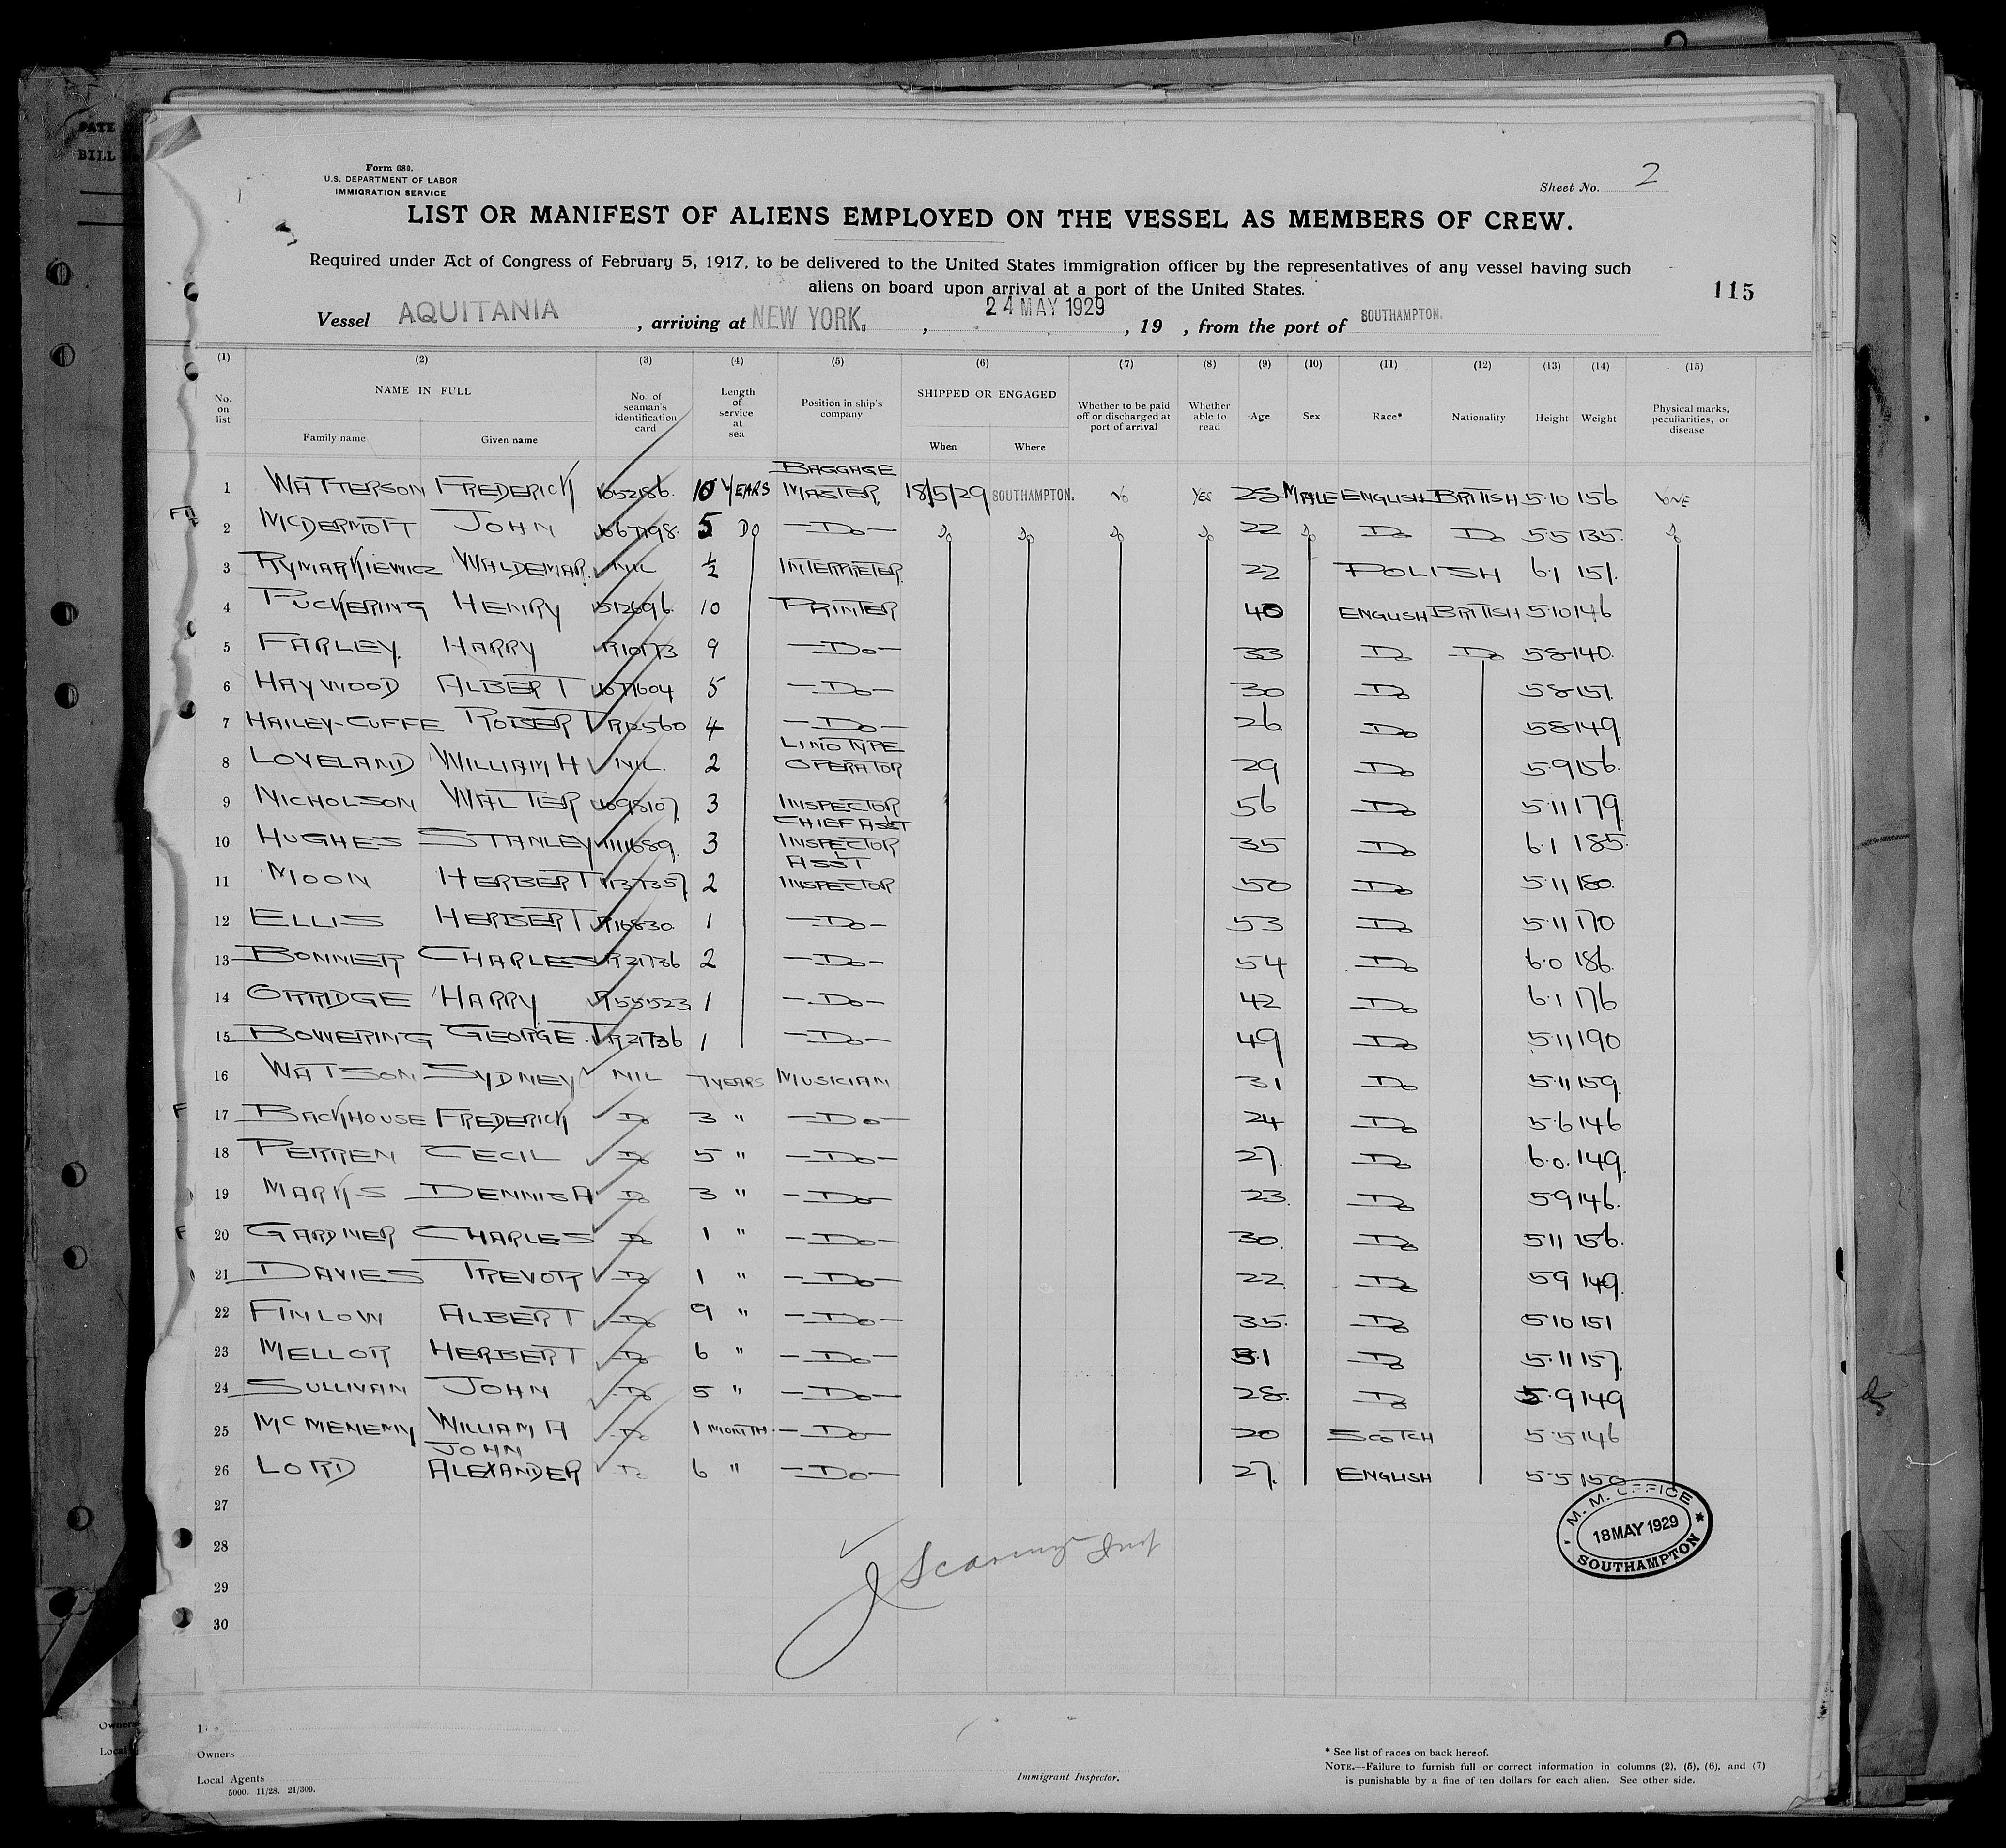 DATE
BILL
Form 680.
U.S. DEPARTMENT OF LABOR
IMMIGRATION SERVICE
Sheet No. 2
LIST OR MANIFEST OF ALIENS EMPLOYED ON THE VESSEL AS MEMBERS OF CREW.
Required under Act of Congress of February 5, 1917, to be delivered to the United States immigration officer by the representatives of any vessel having such
aliens on board upon arrival at a port of the United States.
115
Vessel AQUITANIA, arriving at NEW YORK., 24 MAY 1929, 19 , from the port of SOUTHAMPTON.
(1) (2) (3) (4) (5) (6) (7) (8) (9) (10) (11) (12) (13) (14) (15)
No. on list NAME IN FULL Family name Given name No. of seaman's identification card Length of service at sea Position in ship's company SHIPPED OR ENGAGED When Where Whether to be paid off or discharged at port of arrival Whether able to read Age Sex Race* Nationality Height Weight Physical marks, peculiarities, or disease
1 WATTERSON FREDERICK 1052186. 10 YEARS BAGGAGE MASTER 18/5/29 SOUTHAMPTON. NO YES 25 MALE ENGLISH BRITISH 5·10 156 NONE
2 McDERMOTT JOHN 5 DO —Do— Do Do Do Do 22 Do Do Do 5·5 135. Do
3 RYMARKIEWICZ WALDEMAR. NIL ½ INTERPRETER. 22 POLISH 6·1 151.
4 PUCKERING HENRY 10 PRINTER 40 ENGLISH BRITISH 5·10 146
5 FARLEY HARRY R10173 9 —Do— 33 Do Do 5·8 140.
6 HAYWOOD ALBERT 5 —Do— 30 Do 5·8 151.
7 HAILEY-CUFFE ROBERT R12560 4 —Do— 26 Do 5·8 149
8 LOVELAND WILLIAM H NIL. 2 LINOTYPE OPERATOR 29 Do 5·9 156.
9 NICHOLSON WALTER 1098107 3 INSPECTOR 56 Do 5·11 179
10 HUGHES STANLEY 1111689. 3 CHIEF ASST INSPECTOR 35 Do 6·1 185.
11 MOON HERBERT 1137357 2 ASST INSPECTOR 50 Do 5·11 180.
12 ELLIS HERBERT R16830. 1 —Do— 53 Do 5·11 170
13 BONNER CHARLES R21736 2 —Do— 54 Do 6·0 186.
14 ORRIDGE HARRY R55523 1 —Do— 42 Do 6·1 176
15 BOWERING GEORGE.T R21736 1 —Do— 49 Do 5·11 190
16 WATSON SYDNEY NIL 7 YEARS MUSICIAN 31 Do 5·11 159.
F 17 BACKHOUSE FREDERICK Do 3 " —Do— 24 Do 5·6 146
18 PERREN CECIL Do 5 " —Do— 27. Do 6·0. 149.
19 MARKS DENNIS A Do 3 " —Do— 23. Do 5·9 146.
F 20 GARDNER CHARLES Do 1 " —Do— 30. Do 5 11 156.
21 DAVIES TREVOR Do 1 " —Do— 22. Do 5 9 149.
22 FINLOW ALBERT Do 9 " —Do— 35. Do 5 10 151
23 MELLOR HERBERT Do 6 " —Do— 31 Do 5·11 157.
24 SULLIVAN JOHN Do 5 " —Do— 28. Do 5·9 149
25 McMENEMY WILLIAM A Do 1 MONTH. —Do— 20 SCOTCH 5·5 146
26 LORD JOHN ALEXANDER Do 6 " —Do— 27. ENGLISH 5·5 150
27
28
29
30
M. M. OFFICE
18 MAY 1929
SOUTHAMPTON
Owners
Local Agents
5000. 11/28. 21/309.
Immigrant Inspector.
* See list of races on back hereof.
NOTE.—Failure to furnish full or correct information in columns (2), (5), (6), and (7)
is punishable by a fine of ten dollars for each alien. See other side.
Owners
Local